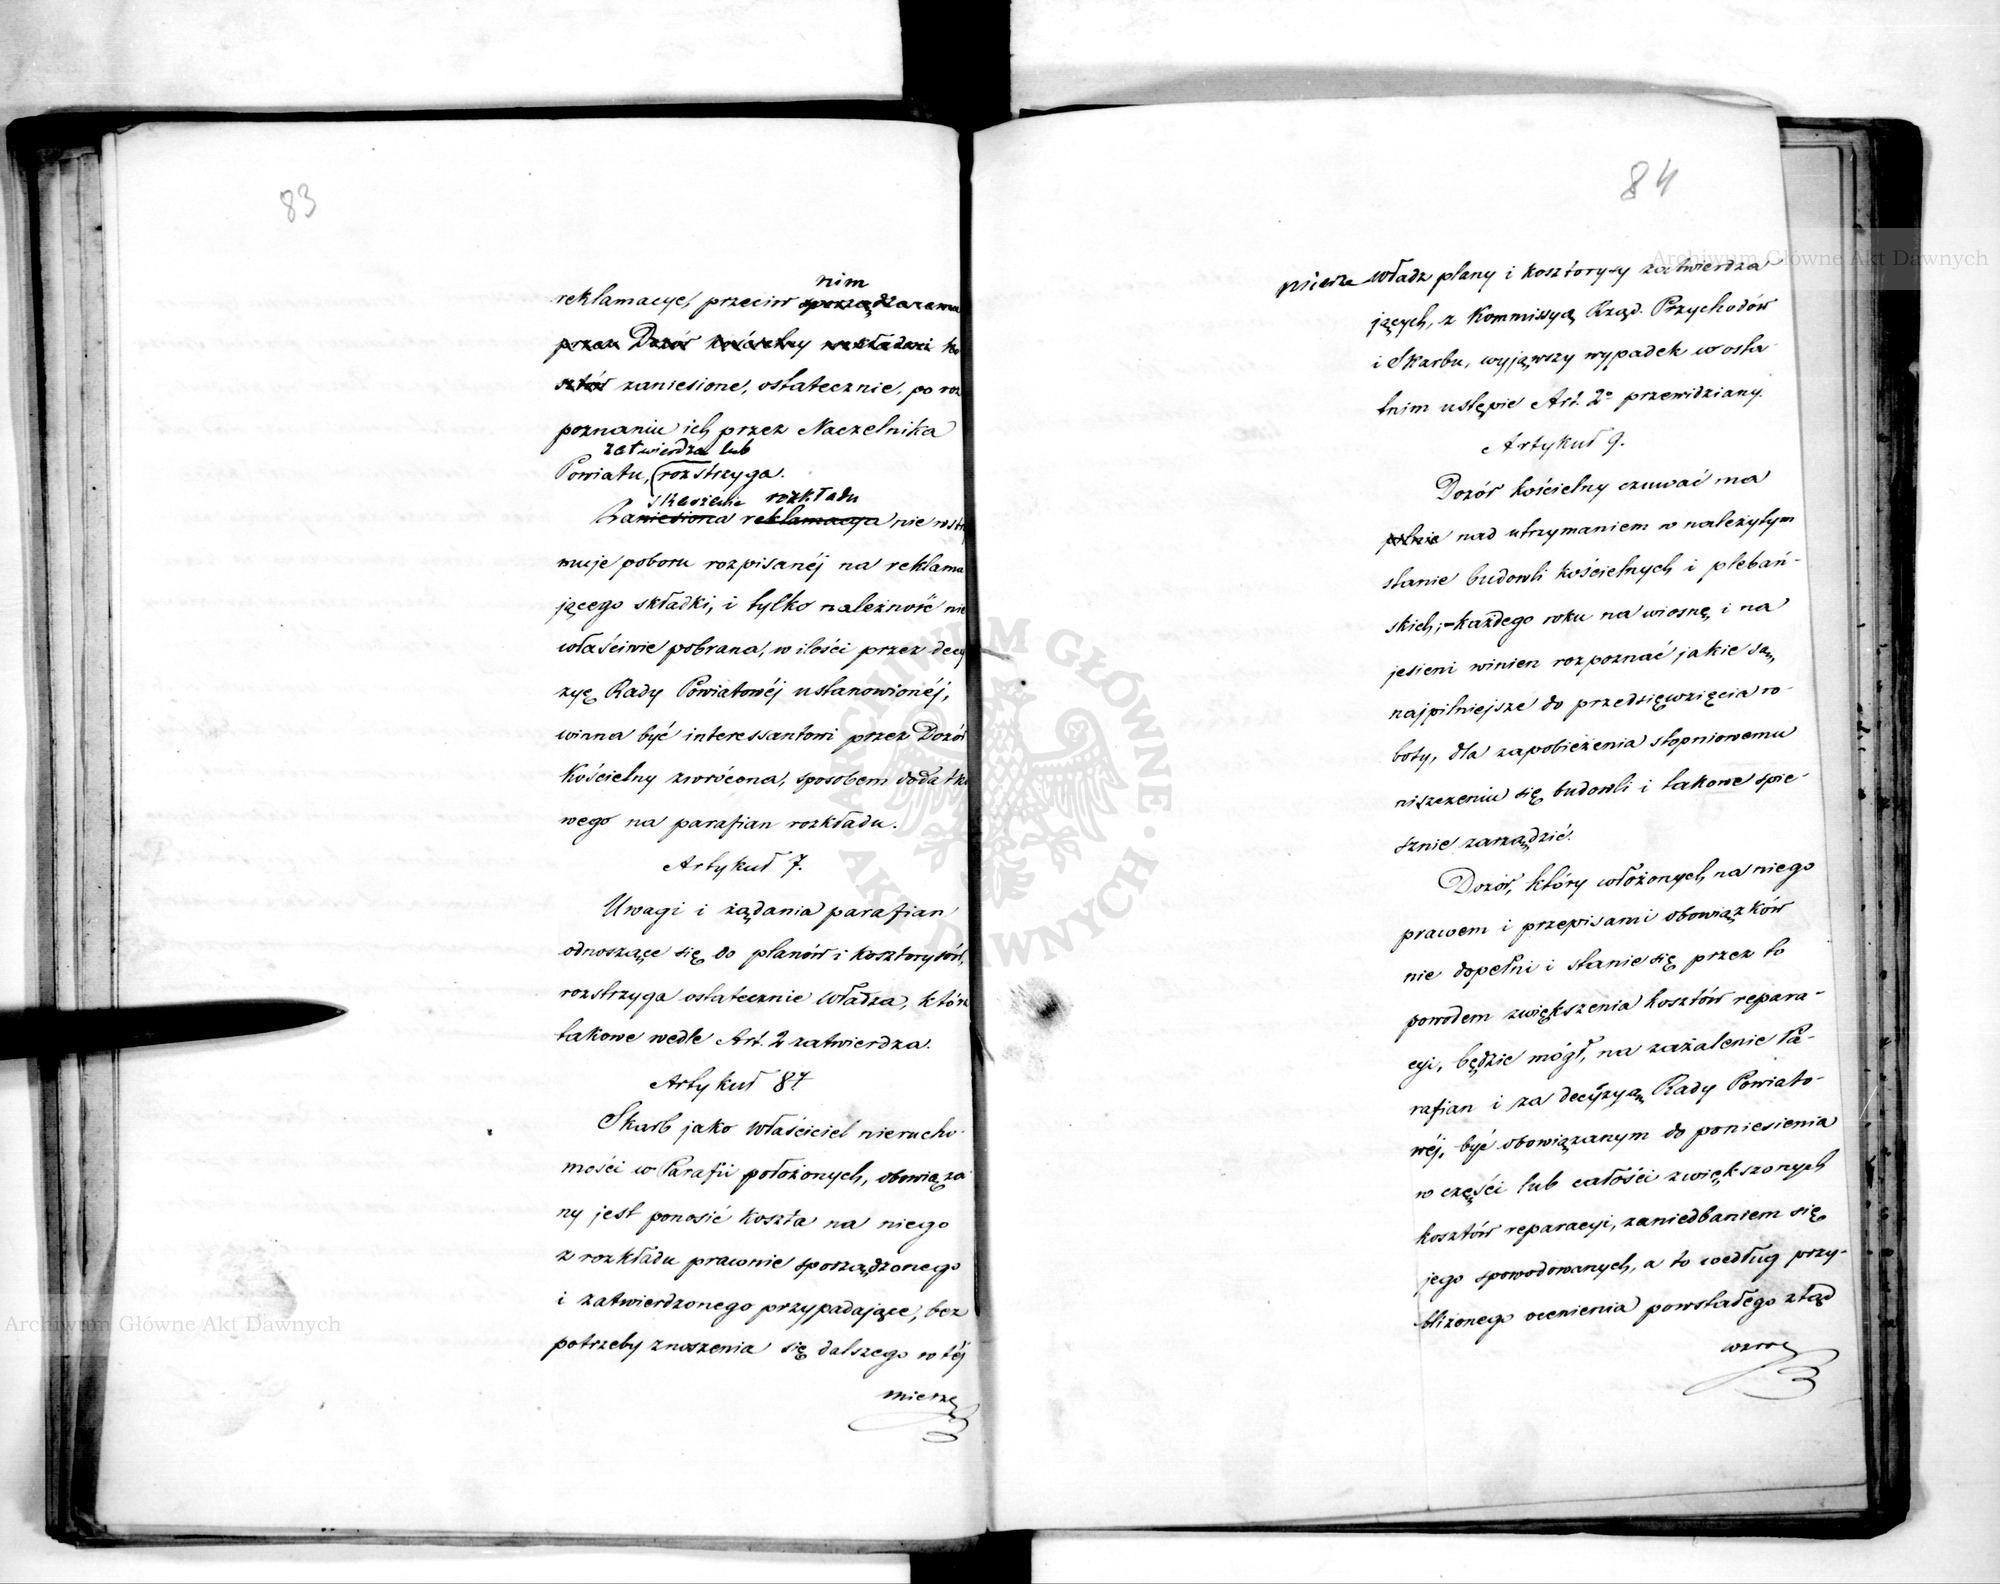 83
nim
reklamacye, przeciw sporządzazawa
przez Dozór kościelny rozkładowi ko
sztów zaniesione, ostatecznie, po roz
poznaniu ich przez Naczelnika
zatwierdza lub
Powiatu, (rozstrzyga.
rozkładu
Zaniesiona reklamacya nie wstrz
muje poboru rozpisanéj na reklamu
jącego składki, i tylko należność nie
właściwie pobrana, w ilości przez decy
zyę Rady Powiatowéj ustanowionéj,
winna być interessantowi przez Dozór
Kościelny zwrócona, sposobem dodatko
wego na parafian rozkładu.
Artykuł 7.
Uwagi i żądania parafian
odnoszące się do planów i kosztorysów,
rozstrzyga ostatecznie Władza, która
takowe wedle Art. 2 zatwierdza.
Artykuł 8
Skarb jako właściciel nierucho-
mości w Parafii położonych, obowiąza
ny jest ponosić koszta na niego
z rozkładu prawnie sporządzonego
i zatwierdzonego przypadające, bez
potrzeby znoszenia się dalszego w téj
mierze
84
mierze władz plany i kosztorysy zatwierdza
jących, z Kommissyą Rząd. Przychodów
i Skarbu, wyjąwszy wypadek w osta-
tnim ustępie Art. 2o przewidziany.
Artykuł 9.
Dozór kościelny czuwać ma
pilnie nad utrzymaniem w należytym
stanie budowli kościelnych i plebań-
skich; - każdego roku na wiosnę i na
jesieni winien rozpoznać jakie są
najpilniejsze do przedsięwzięcia ro-
boty, dla zapobieżenia stopniowemu
niszczeniu się budowli i takowe spie-
sznie zarządzić.
Dozór, który włożonych na niego
prawem i przepisami obowiązków
nie dopełni i stanie się przez to
powodem zwiększenia kosztów repara-
cyi, będzie mógł, na zażalenie Pa-
rafian i za decyzyą Rady Powiato-
wéj, być obowiązanym do poniesienia
w części lub całości zwiększonych
kosztów reparacyi, zaniedbaniem się
jego spowodowanych, a to według przy-
bliżonego ocenienia powstałego ztąd
wzro
Archiwum Główne Akt Dawnych
Archiwum Główne Akt Dawnych
ARCHIWUM GŁÓWNE AKT DAWNYCH